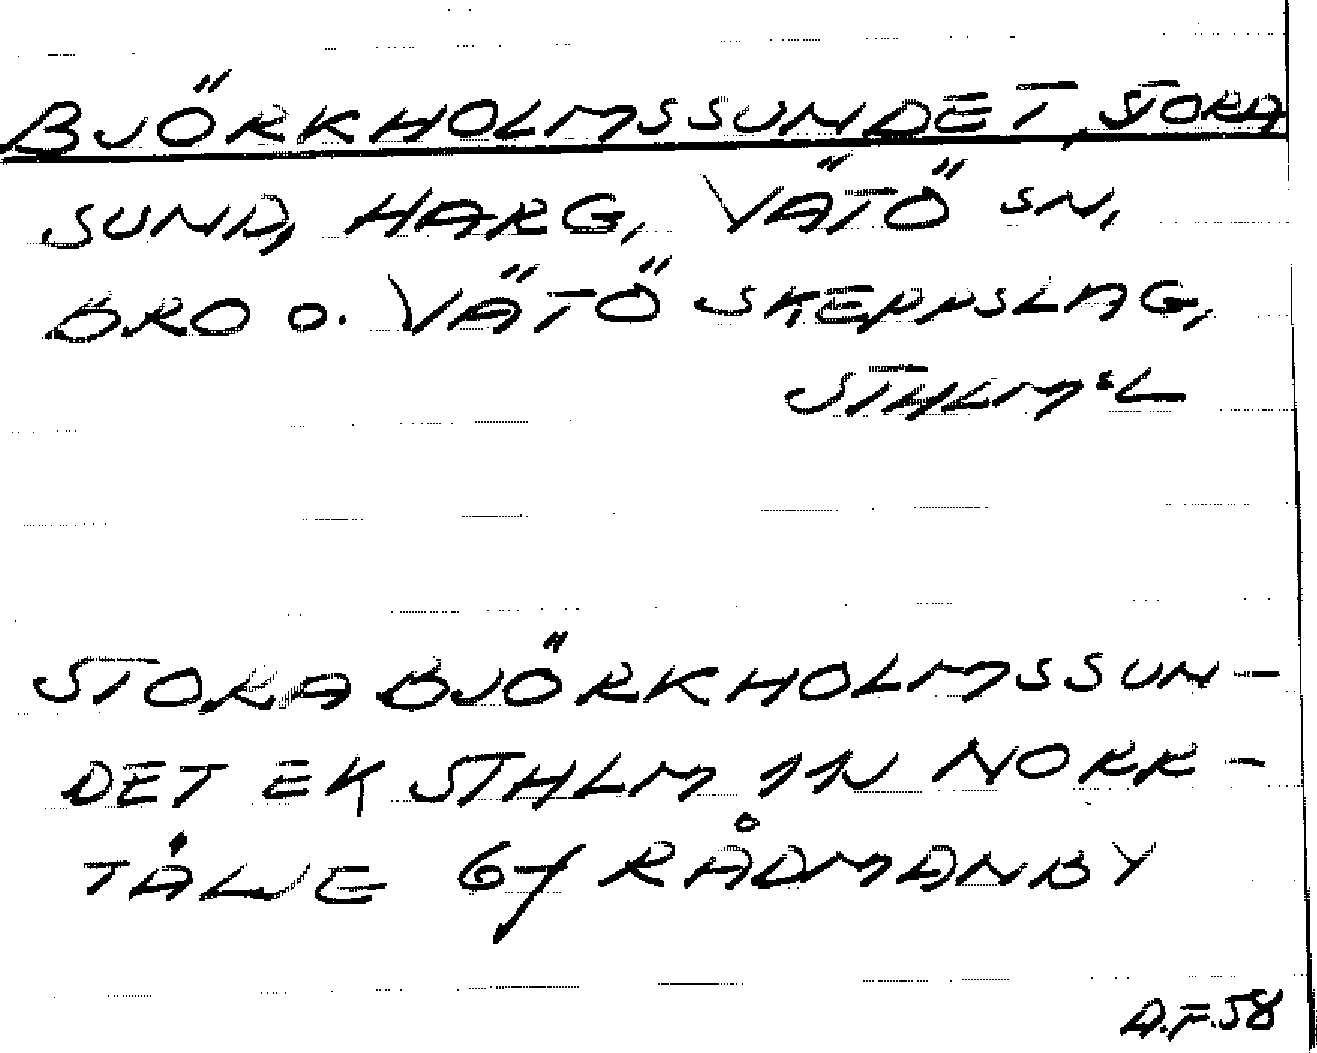 BJÖRKHOLMSSUNDET, STORA
SUND, HARG, VÄTÖ SN,
BRO O. VÄTÖ SKEPPSLAG,
STHLMS L
STORA BJÖRKHOLMSSUN-
DET EK STHLM 11N NORR-
TÄLJE 6f RÅDMANBY
A.F.58